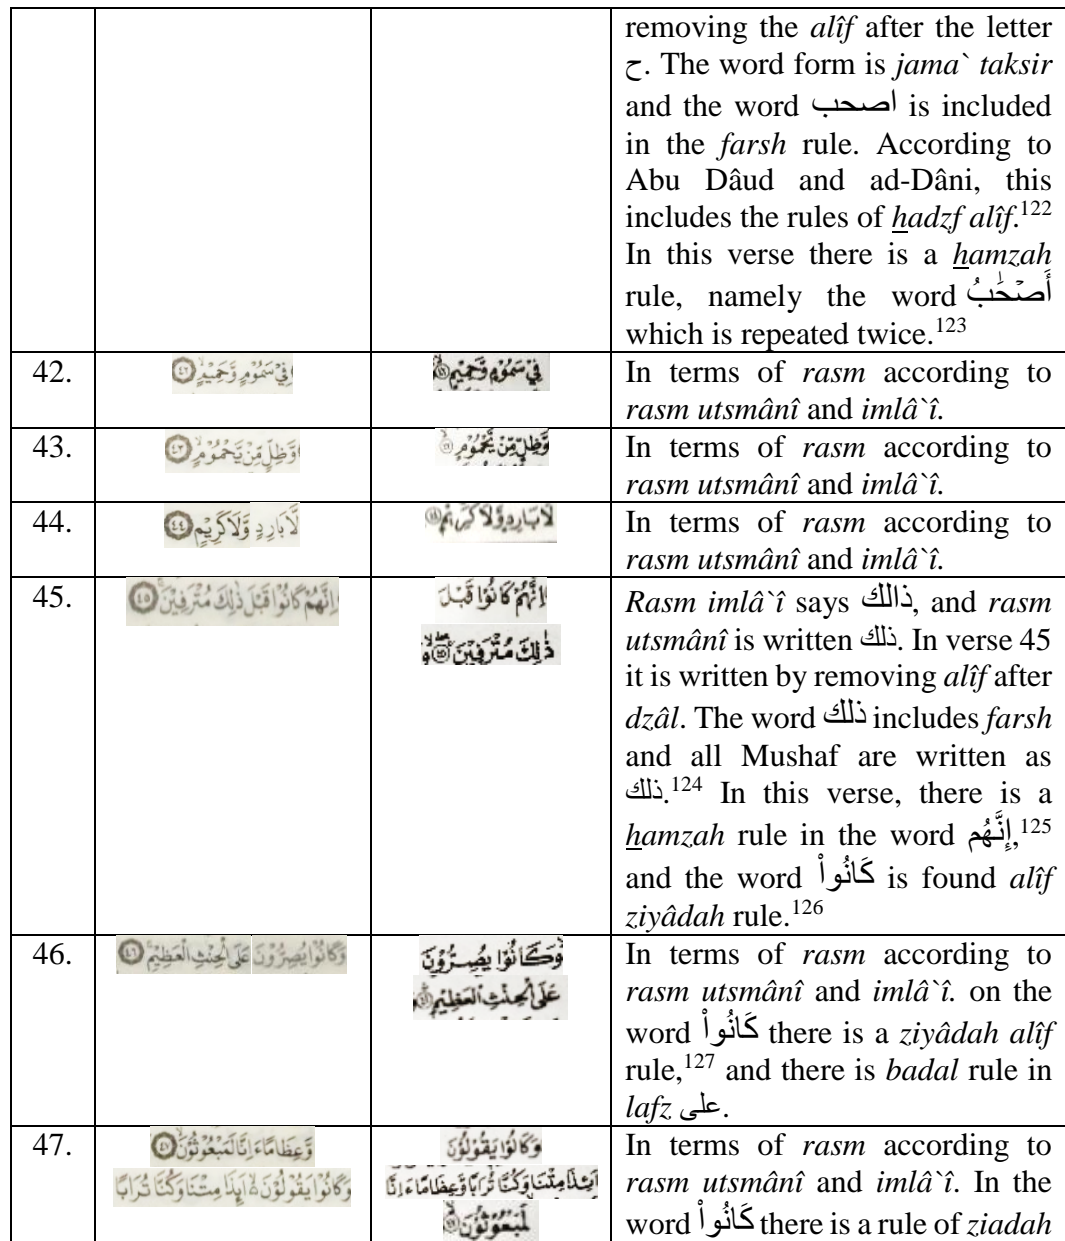 removing the alîf after the letter
ح. The word form is jama` taksir
and the word اصحب is included
in the farsh rule. According to
Abu Dâud and ad-Dâni, this
includes the rules of hadzf alîf.122
In this verse there is a hamzah
rule, namely the word أَصۡحَٰبُ
which is repeated twice.123
42.
فِيْ سَمُوْمٍ وَّحَمِيْمٍۙ ٤٢
فِيْ سَمُوْمٍ وَّحَمِيْمٍ
In terms of rasm according to
rasm utsmânî and imlâ`î.
43.
وَّظِلٍّ مِّنْ يَّحْمُوْمٍۙ ٤٣
وَّظِلٍّ مِّنْ يَّحْمُوْمٍ
In terms of rasm according to
rasm utsmânî and imlâ`î.
44.
لَّا بَارِدٍ وَّلَا كَرِيْمٍ ٤٤
لَا بَارِدٍ وَّلَا كَرِيْمٍ
In terms of rasm according to
rasm utsmânî and imlâ`î.
45.
اِنَّهُمْ كَانُوْا قَبْلَ ذٰلِكَ مُتْرَفِيْنَۚ ٤٥
اِنَّهُمْ كَانُوْا قَبْلَ
ذٰلِكَ مُتْرَفِيْنَ
Rasm imlâ`î says ذالك, and rasm
utsmânî is written ذلك. In verse 45
it is written by removing alîf after
dzâl. The word ذلك includes farsh
and all Mushaf are written as
ذلك.124 In this verse, there is a
hamzah rule in the word إِنَّهُم,125
and the word كَانُواْ is found alîf
ziyâdah rule.126
46.
وَكَانُوْا يُصِرُّوْنَ عَلَى الْحِنْثِ الْعَظِيْمِۚ ٤٦
وَكَانُوْا يُصِرُّوْنَ
عَلَى الْحِنْثِ الْعَظِيْمِ
In terms of rasm according to
rasm utsmânî and imlâ`î. on the
word كَانُواْ there is a ziyâdah alîf
rule,127 and there is badal rule in
lafz على.
47.
وَّعِظَامًا ءَاِنَّا لَمَبْعُوْثُوْنَۙ ٤٧
وَكَانُوْا يَقُوْلُوْنَ ەۙ اَىِٕذَا مِتْنَا وَكُنَّا تُرَابًا
وَكَانُوْا يَقُوْلُوْنَ
اَىِٕذَا مِتْنَا وَكُنَّا تُرَابًا وَّعِظَامًا ءَاِنَّا
لَمَبْعُوْثُوْنَ
In terms of rasm according to
rasm utsmânî and imlâ`î. In the
word كَانُواْ there is a rule of ziadah